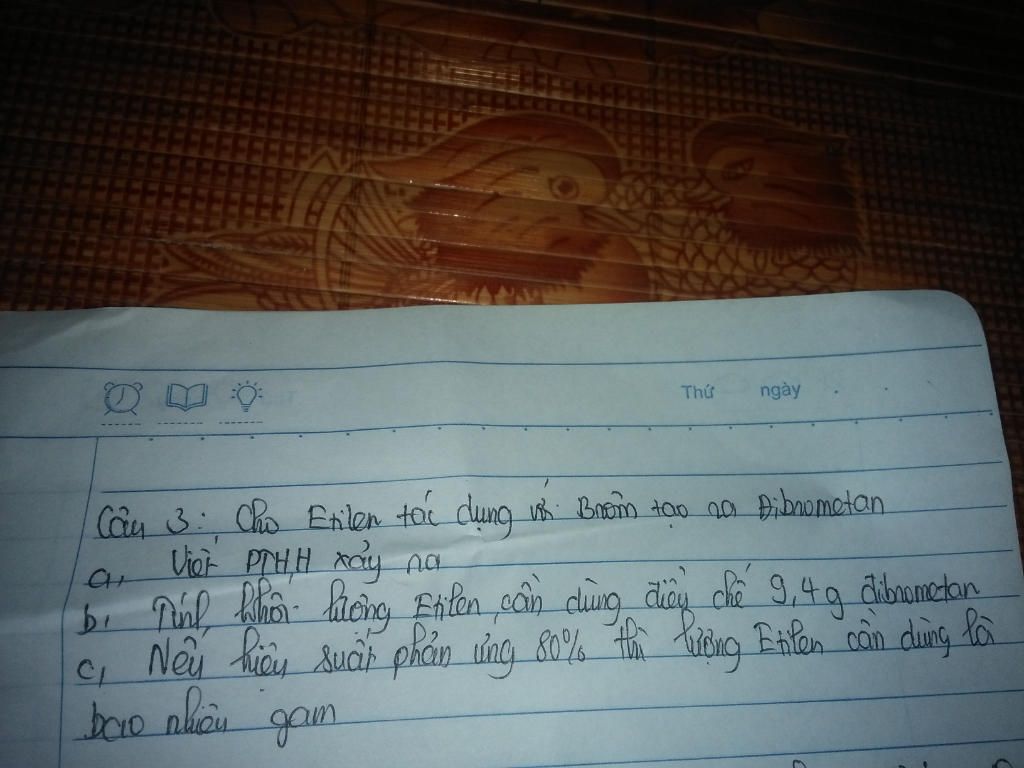 Thứ ngày
Câu 3: Cho Etilen tác dụng với Brôm tạo ra Đibrometan
a, Viết PTHH xảy ra
b, Tính khối lượng Etilen cần dùng điều chế 9,4g đibrometan
c, Nếu hiệu suất phản ứng 80% thì lượng Etilen cần dùng là
bao nhiêu gam